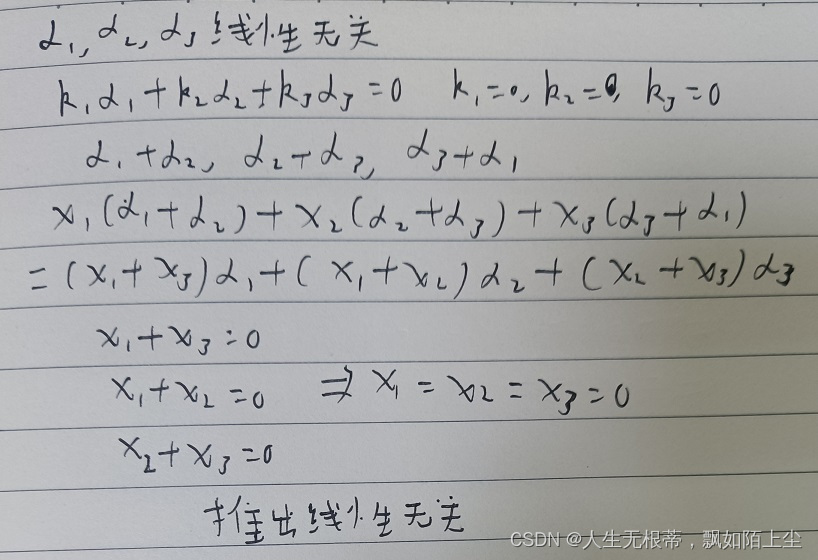 α₁, α₂, α₃ 线性无关
k₁α₁+k₂α₂+k₃α₃=0 k₁=0, k₂=0, k₃=0
α₁+α₂, α₂+α₃, α₃+α₁
x₁(α₁+α₂)+x₂(α₂+α₃)+x₃(α₃+α₁)
=(x₁+x₃)α₁+(x₁+x₂)α₂+(x₂+x₃)α₃
x₁+x₃=0
x₁+x₂=0 ⇒ x₁=x₂=x₃=0
x₂+x₃=0
推出线性无关
CSDN @人生无根蒂，飘如陌上尘